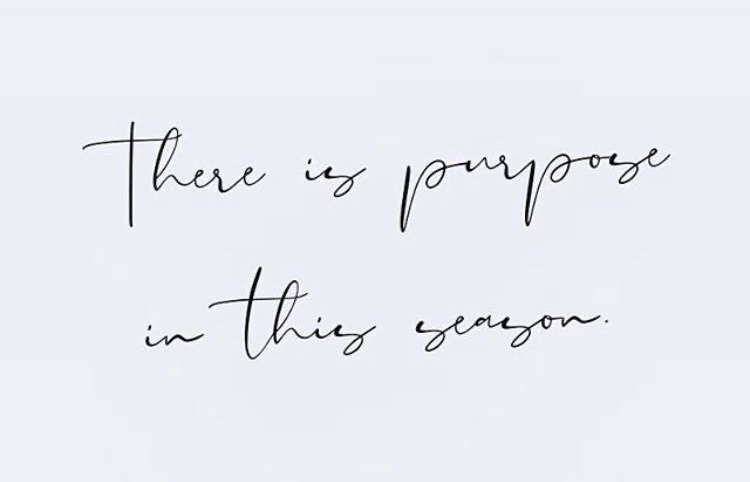 There is purpose
in this season.